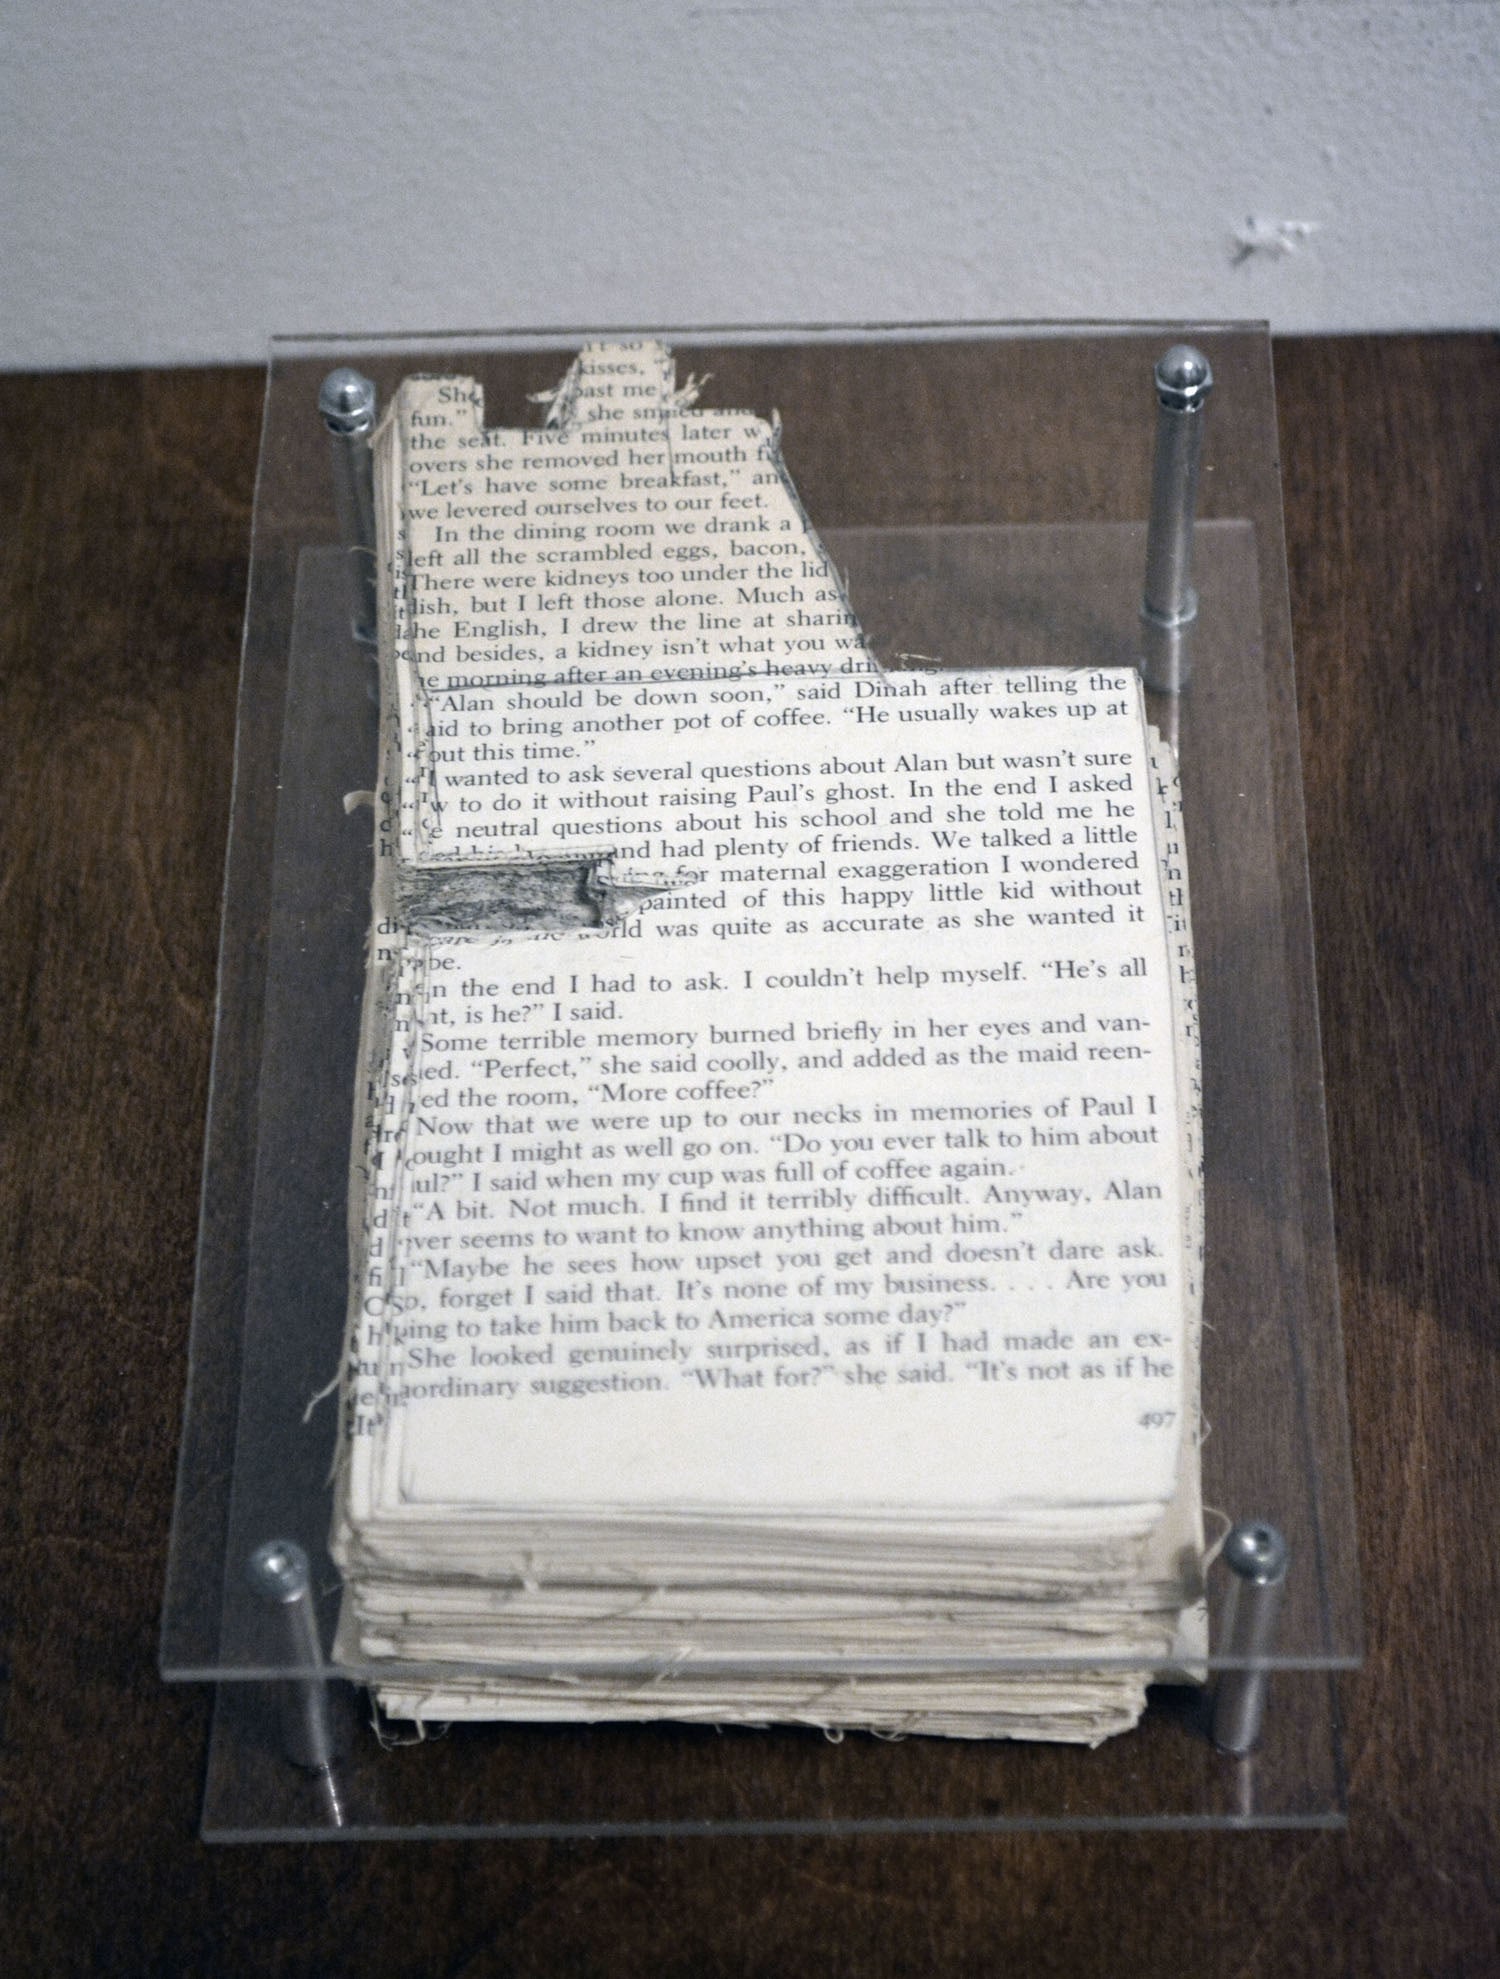 kisses,"
past me
She
fun." she smiled and
the seat. Five minutes later w
overs she removed her mouth f
"Let's have some breakfast," an
we levered ourselves to our feet.
In the dining room we drank a
left all the scrambled eggs, bacon,
There were kidneys too under the lid
dish, but I left those alone. Much as
he English, I drew the line at sharin
nd besides, a kidney isn't what you wa
e morning after an evening's heavy
"Alan should be down soon," said Dinah after telling the
aid to bring another pot of coffee. "He usually wakes up at
out this time."
I wanted to ask several questions about Alan but wasn't sure
w to do it without raising Paul's ghost. In the end I asked
e neutral questions about his school and she told me he
and had plenty of friends. We talked a little
for maternal exaggeration I wondered
painted of this happy little kid without
was quite as accurate as she wanted it
be.
n the end I had to ask. I couldn't help myself. "He's all
ht, is he?" I said.
Some terrible memory burned briefly in her eyes and van-
ed. "Perfect," she said coolly, and added as the maid reen-
ed the room, "More coffee?"
Now that we were up to our necks in memories of Paul I
ought I might as well go on. "Do you ever talk to him about
ul?" I said when my cup was full of coffee again.
"A bit. Not much. I find it terribly difficult. Anyway, Alan
ver seems to want to know anything about him."
"Maybe he sees how upset you get and doesn't dare ask.
o, forget I said that. It's none of my business. . . . Are you
ing to take him back to America some day?"
She looked genuinely surprised, as if I had made an ex-
aordinary suggestion. "What for?" she said. "It's not as if he
497